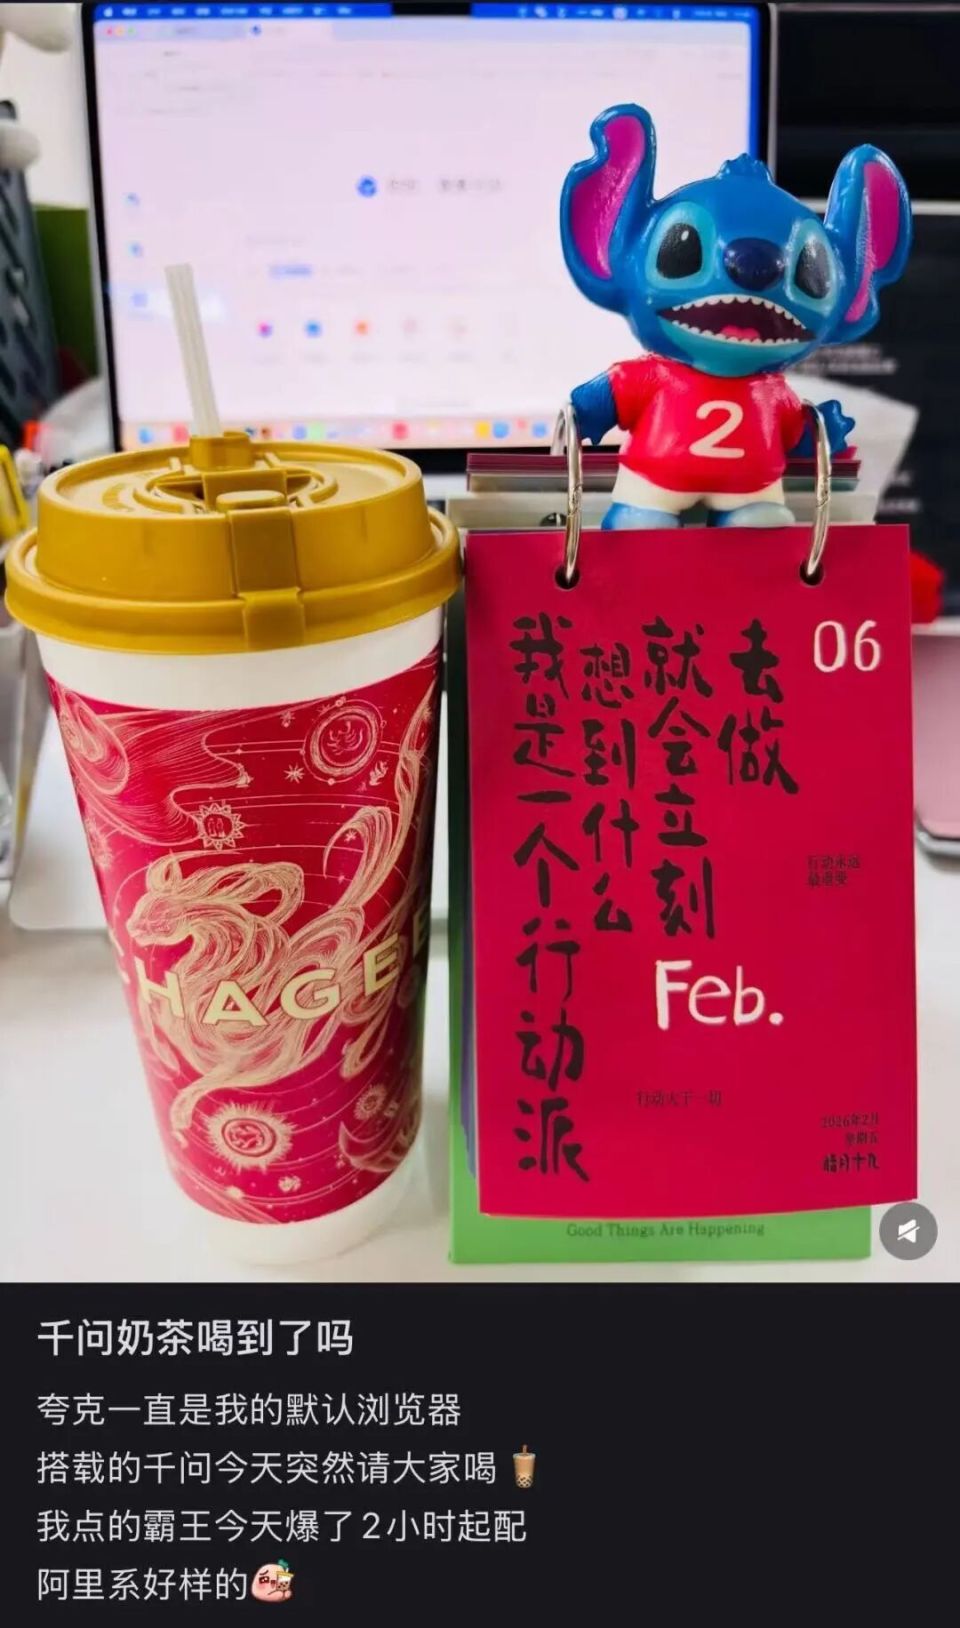 2
06
我是一个行动派
想到什么
就会立刻
去做
行动永远
最重要
Feb.
行动大于一切
2026年2月
星期五
腊月十九
CHAGEE
Good Things Are Happening
千问奶茶喝到了吗
夸克一直是我的默认浏览器
搭载的千问今天突然请大家喝🧋
我点的霸王今天爆了2小时起配
阿里系好样的